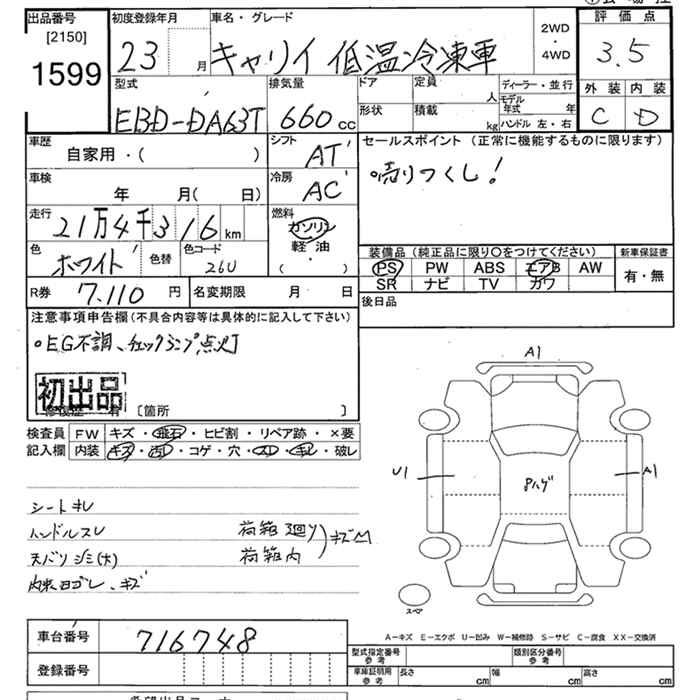 出品番号 初度登録年月 車名・グレード 評価点
[2150] 2WD
1599 23 月 キャリイ 低温冷凍車 4WD 3.5
型式 排気量 ドア 定員 人 ディーラー・並行 外装 内装
EBD-DA63T 660 cc 形状 積載 kg モデル年式 年 ハンドル 左・右 C D
車歴 シフト セールスポイント (正常に機能するものに限ります)
自家用・( ) AT
車検 冷房 売りつくし!
年 月( 日) AC
走行 燃料
21万4千316 km ガソリン
軽油
色 色替 色コード ・( ) 装備品 (純正品に限り○をつけてください) 新車保証書
ホワイト 26U PS PW ABS エアB AW 有・無
R券 7,110 円 名変期限 月 日 SR ナビ TV カワ
後日品
注意事項申告欄(不具合内容等は具体的に記入して下さい)
・EG不調、チェックランプ点灯
初出品
修復歴 有 [箇所 ]
検査員 FW キズ・飛石・ヒビ割・リペア跡・×要
記入欄 内装 キズ・汚レ・コゲ・穴・スレ・キレ・破レ
シートキレ
ハンドルスレ 荷箱廻り キズM
天バリシミ(大) 荷箱内
内装ヨゴレ、キズ
A1
U1 A1
Pハゲ
スペア
A-キズ E-エクボ U-凹み W-補修跡 S-サビ C-腐食 XX-交換済
車台番号 716748
登録番号
型式指定番号 参考 類別区分番号 参考
車庫証明用 参考 長さ cm 幅 cm 高さ cm